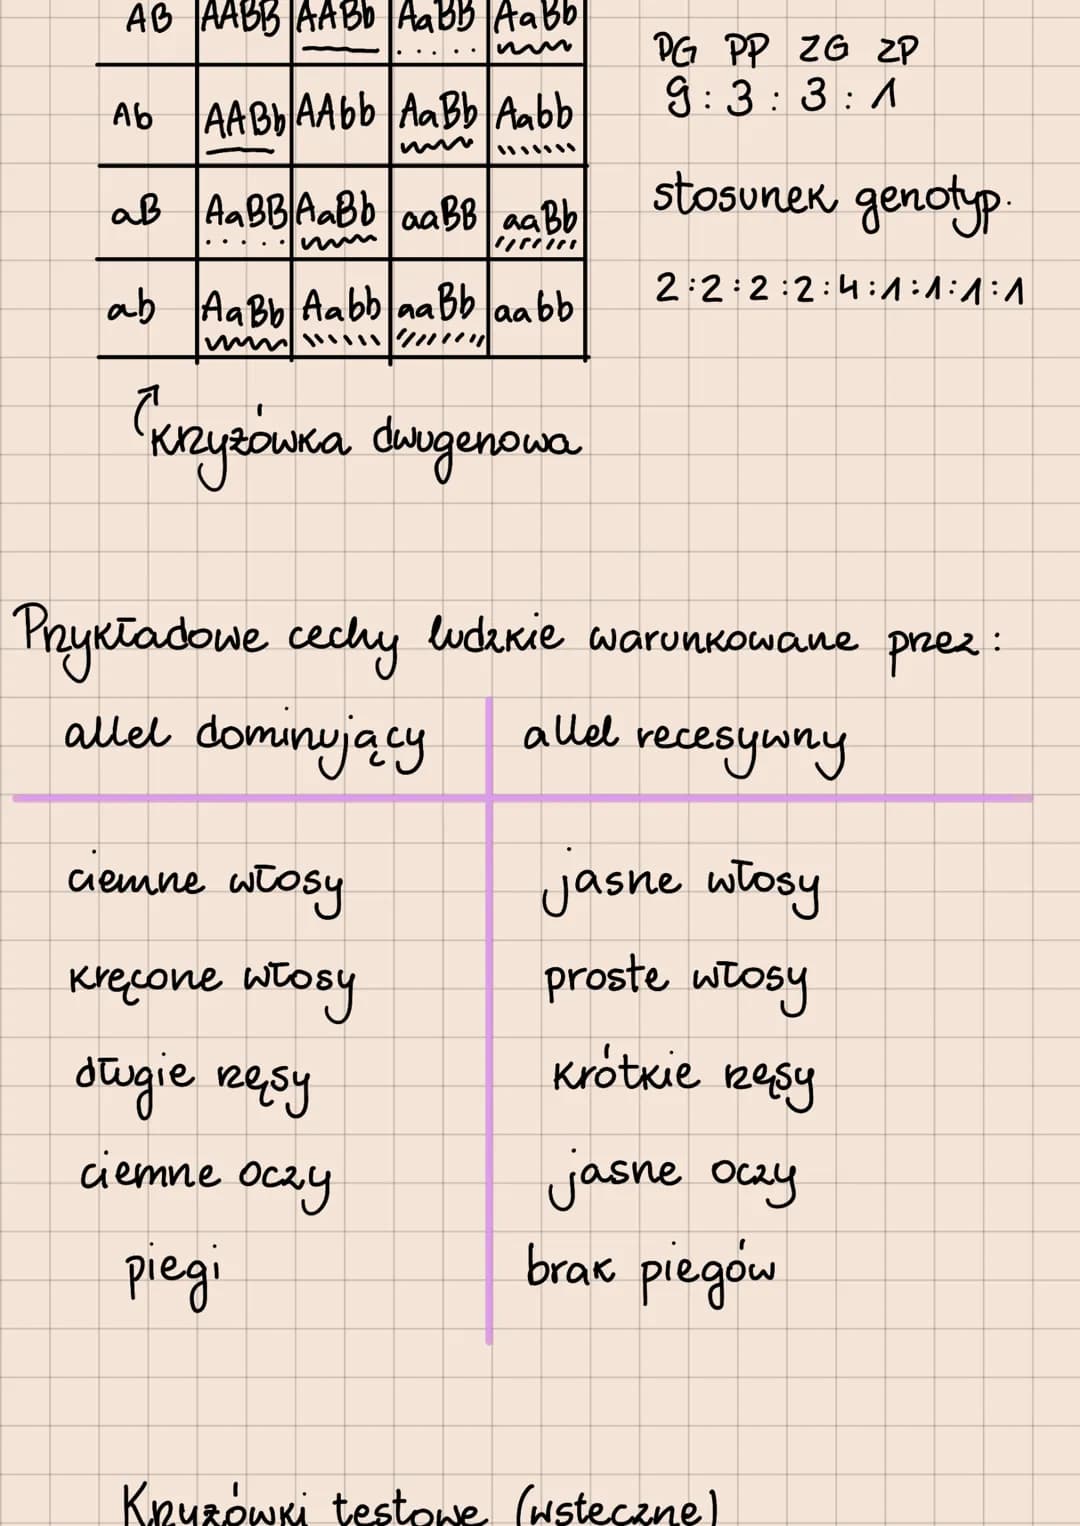 AB AABB AABb AaBB AaBb
PG PP ZG ZP
9 : 3 : 3 : 1
Ab AABb AAbb AaBb Aabb
aB AaBB AaBb aaBB aaBb
stosunek genotyp.
2:2:2:2:4:1:1:1:1
ab AaBb Aabb aaBb aabb
krzyżówka dwugenowa
Przykładowe cechy ludzkie warunkowane przez :
allel dominujący allel recesywny
ciemne włosy jasne włosy
kręcone włosy proste włosy
długie rzęsy krótkie rzęsy
ciemne oczy jasne oczy
piegi brak piegów
Krzyżówki testowe (wsteczne)